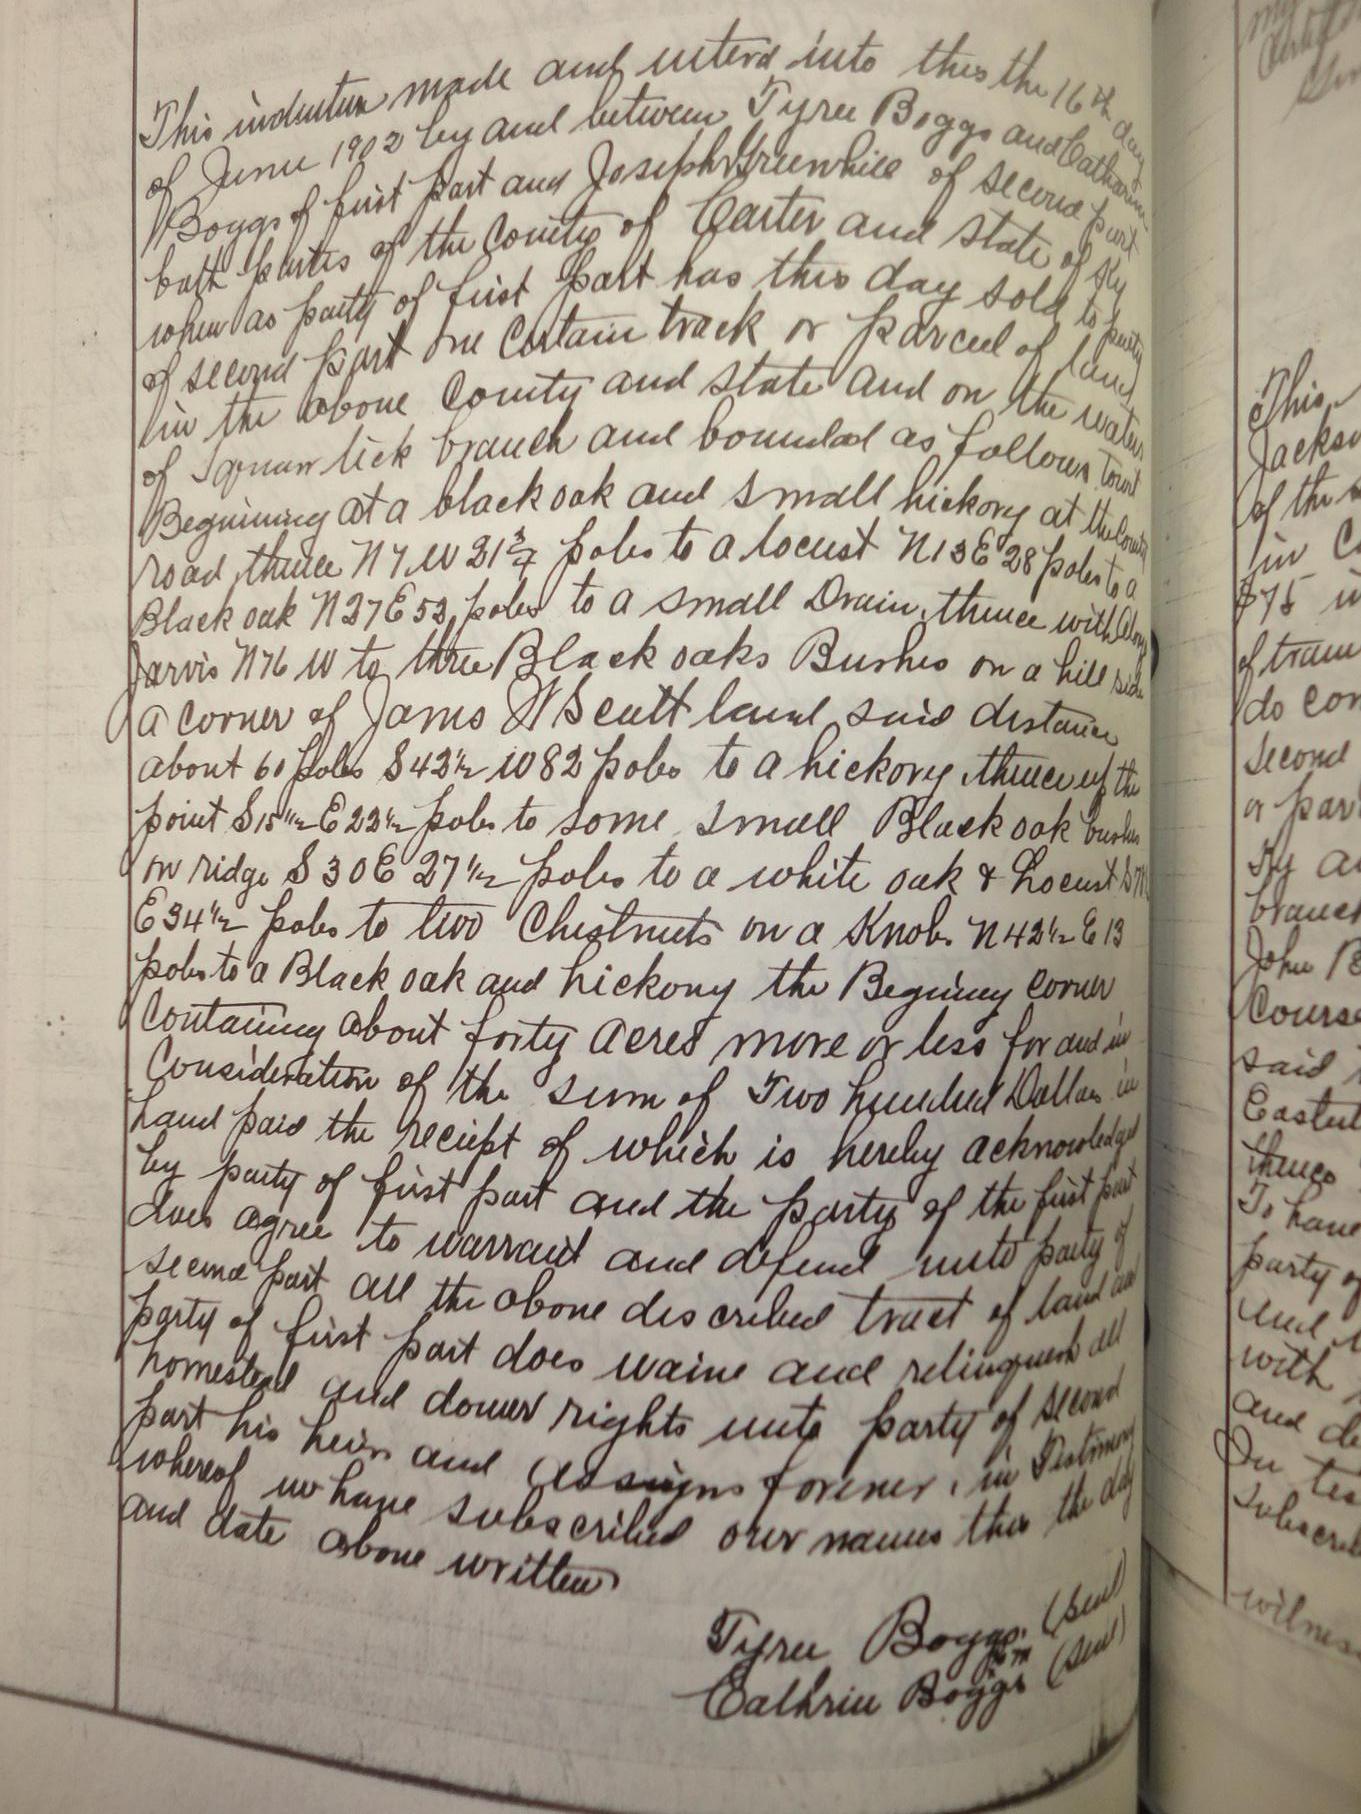 This indenture made and interd into this the 16th day
of June 1902 by and between Tyree Boggs and Catharine
Boggs of first part and Joseph Greenhill of second part
both parties of the County of Carter and state of Ky
where as party of first part has this day sold to party
of second part one certain track or parcel of land
in the above County and state and on the waters
of lick branch and bounded as follows towit
Beginning at a black oak and small hickory at the County
road, thence N 7 W 21 3/4 poles to a locust N 13 E 28 poles to a
Black oak N 27 E 52 poles to a small Drain, thence with
Jarvis N 76 W to three Black oaks Bushes on a hill side
a corner of James W Scott land, said distance
about 60 poles S 42 1/2 W 82 poles to a hickory, thence up the
point S 15 1/2 E 22 1/2 poles to some small Black oak bushes
on ridge S 30 E 27 1/2 poles to a white oak & Locust
E 34 1/2 poles to two Chestnuts on a Knob N 42 1/2 E 13
poles to a Black oak and hickony the Beginny corner
Containing about forty acres more or less for and in
Consideration of the sum of Two hundred Dollars in
hand paid the reciept of which is hereby acknowledged
by party of first part and the party of the first part
does agree to warrant and defend unto party of
second part all the above discribed tract of land and
party of first part does waive and relinquish all
homestead and dower rights unto party of second
part his heirs and assigns forever, in Testimony
whereof we have subscribed our names this the day
and date above written
Tyree Boggs (seal)
Cathrin Boggs (seal)
This
Jackson
of the
in
$75
of
do con
second
or par
Ky a
branch
John B
Course
said
Easter
thence
To have
party of
and
with
and de
In tes
subscrib
witness